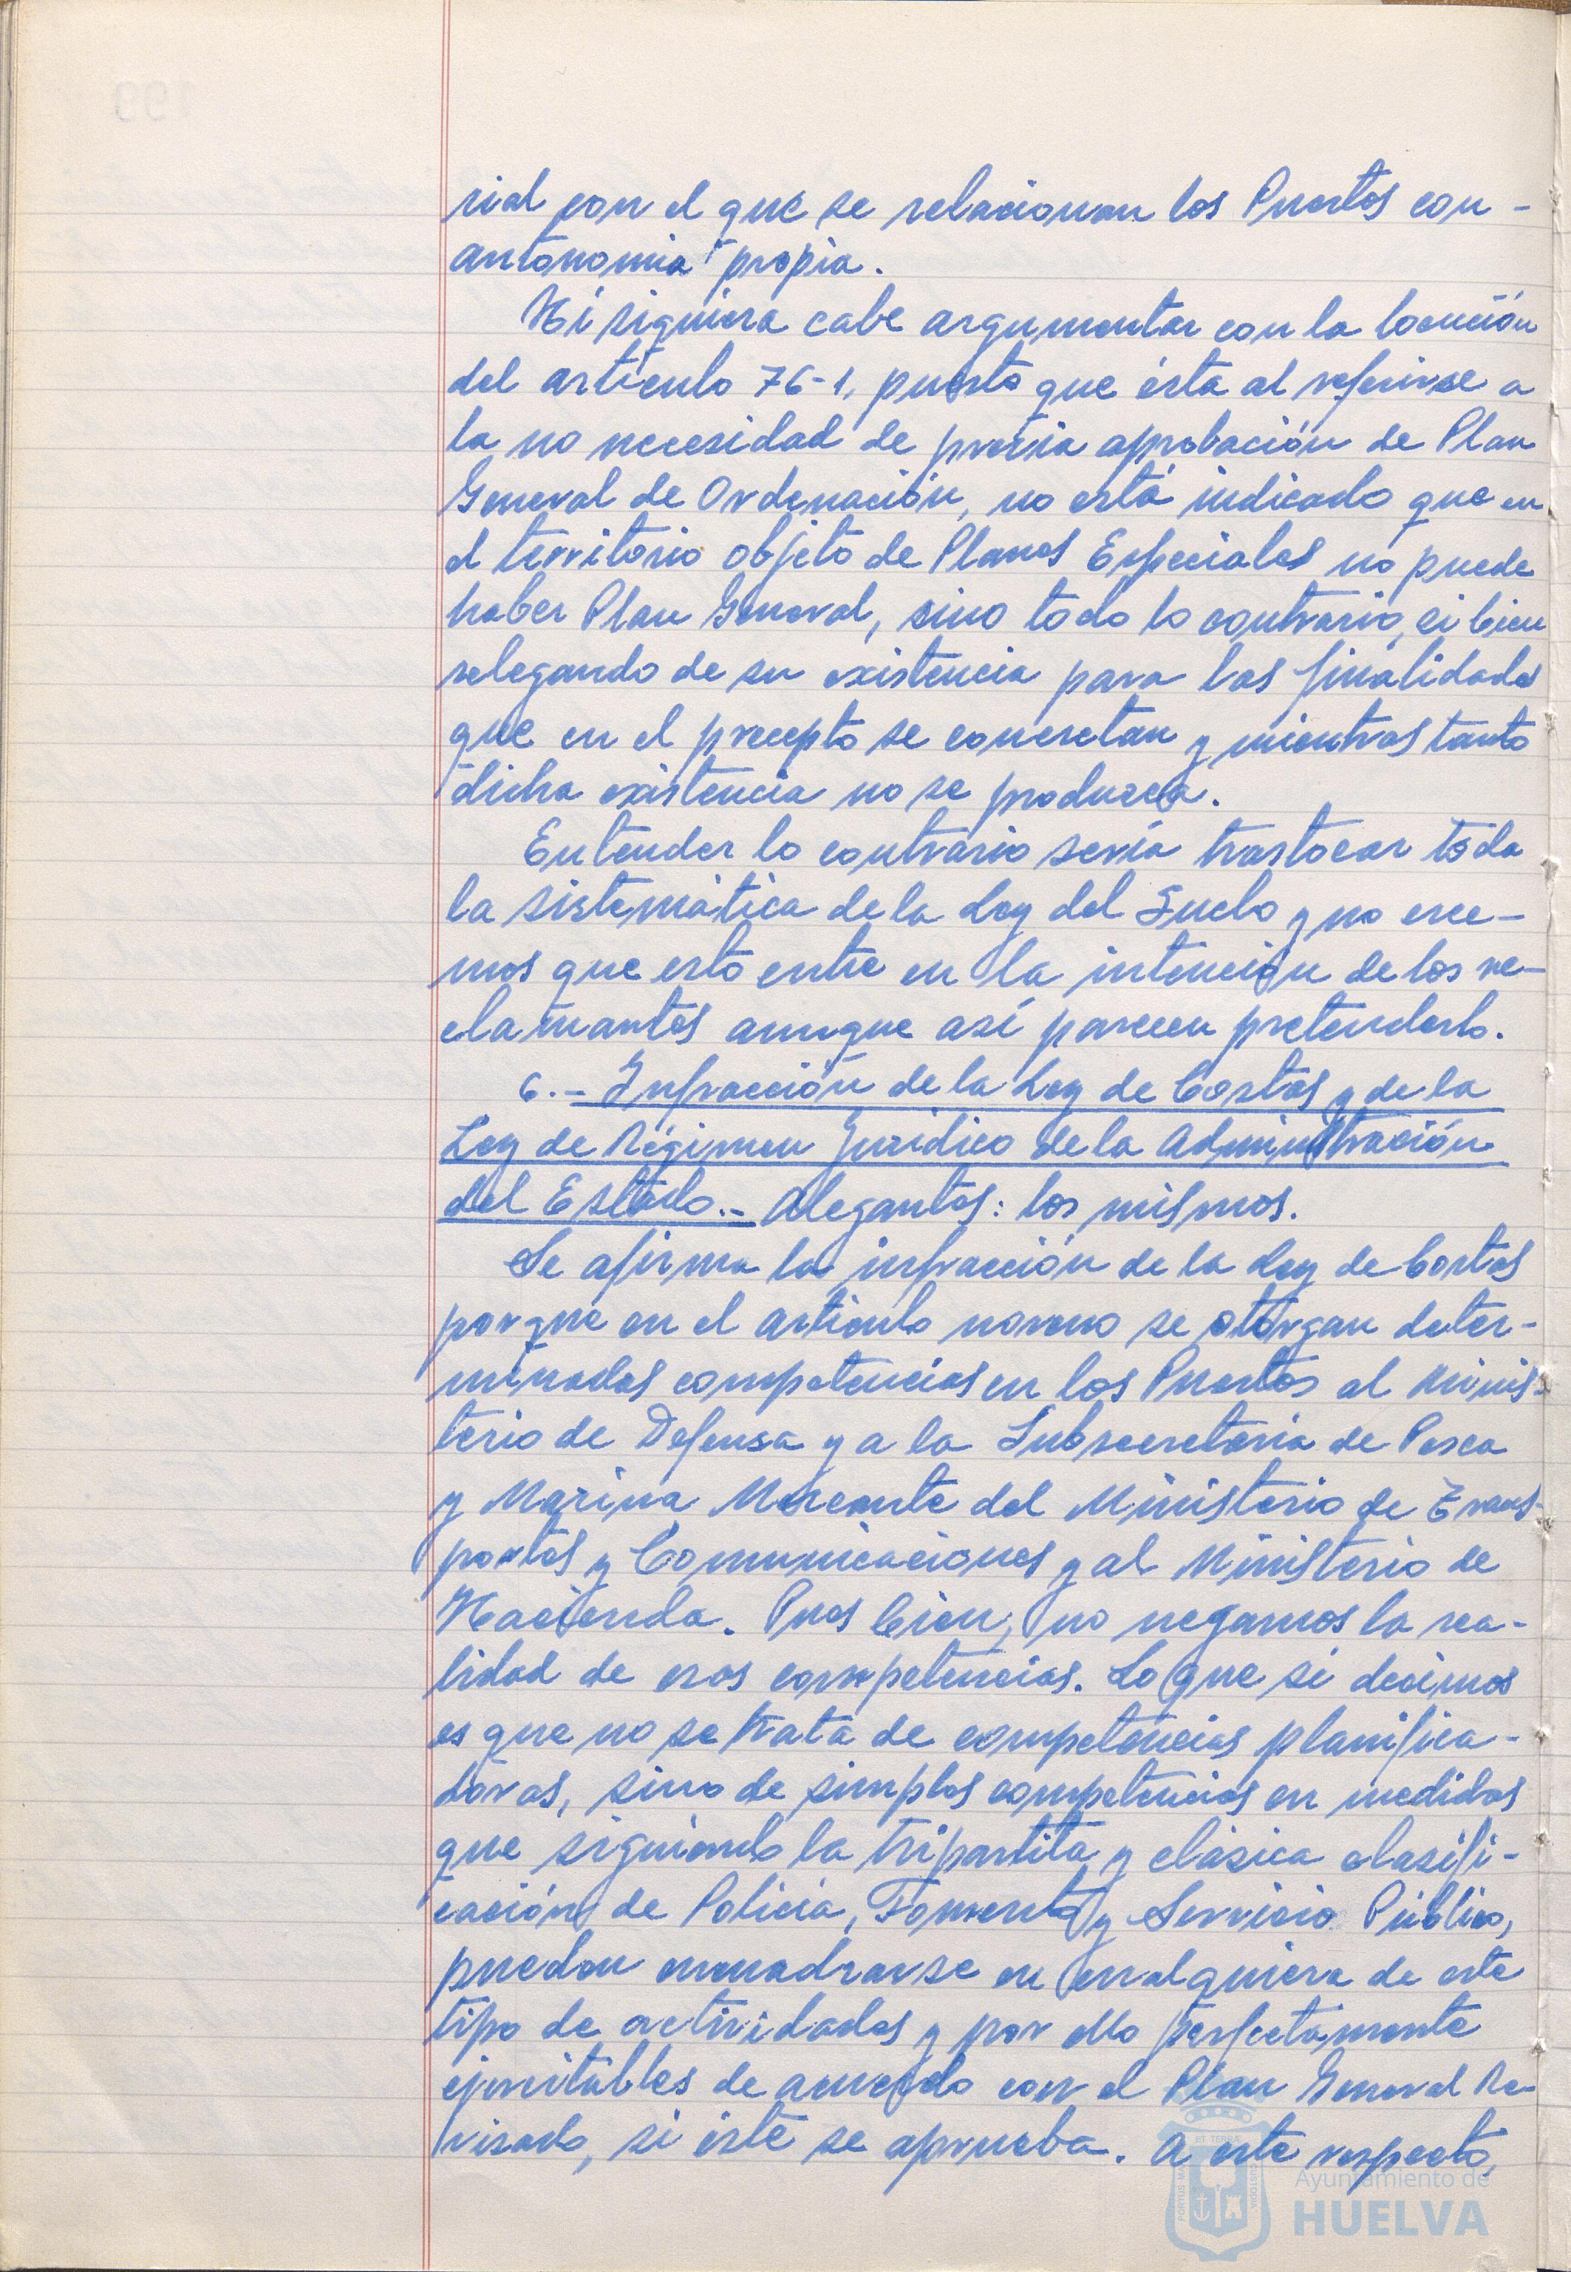 rial con el que se relacionan los Puertos con -
autonomia propia.
Ni siquiera cabe argumentar con la locución
del artículo 76-1, puesto que ésta al referirse a
la no necesidad de previa aprobación de Plan
General de Ordenación, no está indicado que en
el territorio objeto de Planes Especiales no puede
haber Plan General, sino todo lo contrario, si bien
relegando de su existencia para las finalidades
que en el precepto se concretan y mientras tanto
dicha existencia no se produzca.
Entender lo contrario sería trastocar toda
la sistemática de la Ley del Suelo y no cree-
mos que esto entre en la intención de los re-
clamantes aunque así parecen pretenderlo.
6.- Infracción de la Ley de Costas y de la
Ley de Régimen Jurídico de la Administración
del Estado.- Alegantes: los mismos.
Se afirma la infracción de la Ley de Costas
porque en el artículo noveno se otorgan deter-
minadas competencias en los Puertos al Minis-
terio de Defensa y a la Subsecretaría de Pesca
y Marina Mercante del Ministerio de Trans-
portes y Comunicaciones y al Ministerio de
Hacienda. Pues bien, no negamos la rea-
lidad de esas competencias. Lo que si decimos
es que no se trata de competencias planifica-
doras, sino de simples competencias en medidas
que siguiendo la tripartita y clásica clasifi-
cación de Policía, Fomento y Servicio Público,
pueden encuadrarse en cualquiera de este
tipo de actividades y por ello perfectamente
ejecutables de acuerdo con el Plan General Re-
visado, si éste se aprueba. A este respecto,
Ayuntamiento de
HUELVA